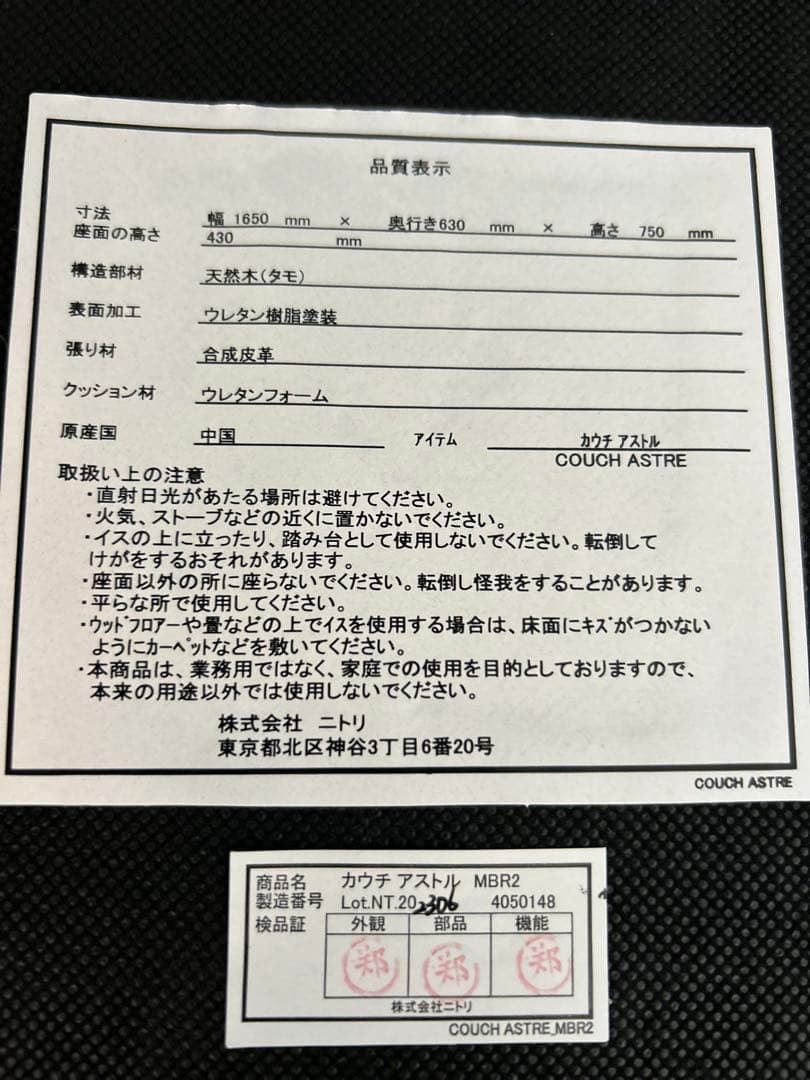 品質表示
寸法 幅 1650 mm × 奥行き630 mm × 高さ 750 mm
座面の高さ 430 mm
構造部材 天然木(タモ)
表面加工 ウレタン樹脂塗装
張り材 合成皮革
クッション材 ウレタンフォーム
原産国 中国 アイテム カウチ アストル
COUCH ASTRE
取扱い上の注意
・直射日光があたる場所は避けてください。
・火気、ストーブなどの近くに置かないでください。
・イスの上に立ったり、踏み台として使用しないでください。転倒して
けがをするおそれがあります。
・座面以外の所に座らないでください。転倒し怪我をすることがあります。
・平らな所で使用してください。
・ウッドフロアーや畳などの上でイスを使用する場合は、床面にキズがつかない
ようにカーペットなどを敷いてください。
・本商品は、業務用ではなく、家庭での使用を目的としておりますので、
本来の用途以外では使用しないでください。
株式会社 ニトリ
東京都北区神谷3丁目6番20号
COUCH ASTRE
商品名 カウチ アストル MBR2
製造番号 Lot.NT.202306 4050148
検品証 外観 部品 機能
郑 郑 郑
株式会社ニトリ
COUCH ASTRE_MBR2